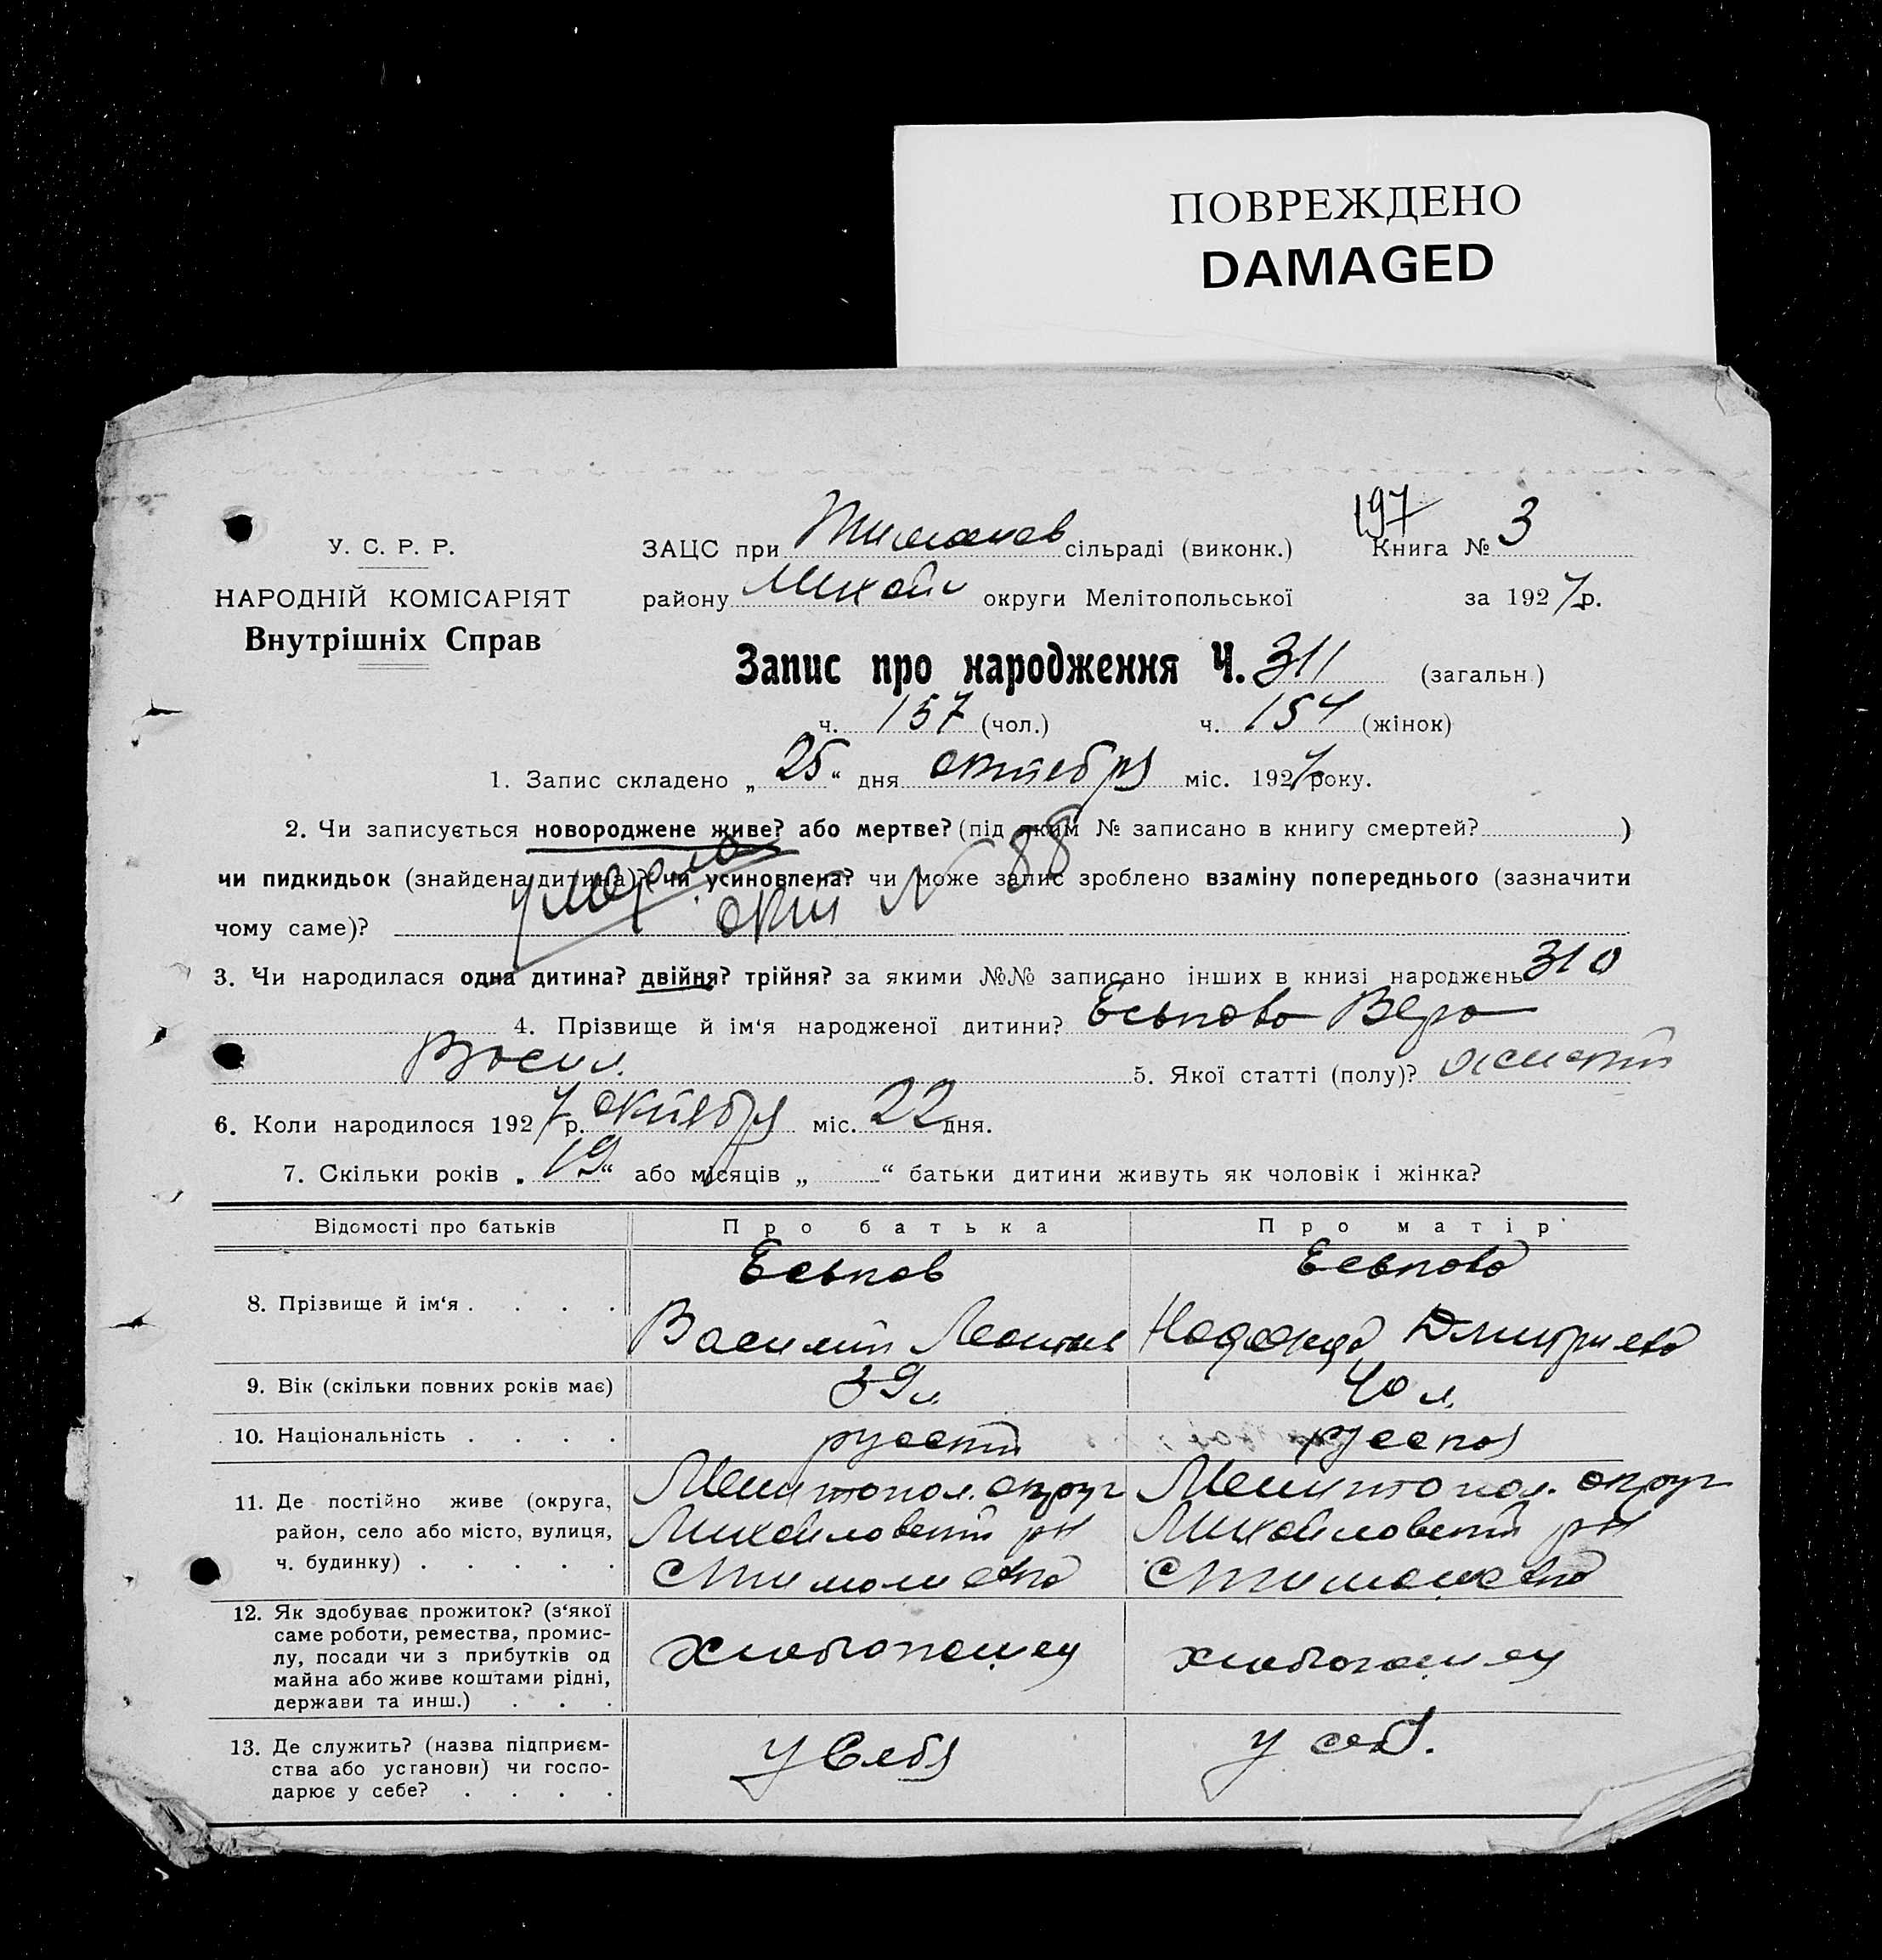 ПОВРЕЖДЕНО
DAMAGED
197
У. С. Р. Р.
НАРОДНІЙ КОМІСАРІЯТ
Внутрішніх Справ
ЗАЦС при Тимошов сільраді (виконк.) Книга № 3
району Михайл округи Мелітопольської за 1927 р.
Запис про народження Ч. 311 (загальн.)
ч. 157 (чол.) ч. 154 (жінок)
1. Запис складено „ 25 “ дня октебря міс. 1927 року.
2. Чи записується новороджене живе? або мертве? (під яким № записано в книгу смертей? )
чи пидкидьок (знайдена дитина)? чи усиновлена? чи може запис зроблено взаміну попереднього (зазначити
умерла акт № 88
чому саме)?
3. Чи народилася одна дитина? двійня? трійня? за якими №№ записано інших в книзі народжень 310
4. Прізвище й ім‘я народженої дитини? Есьпова Вера
Васил. 5. Якої статті (полу)? женски
6. Коли народилося 1927 р. октебря міс. 22 дня.
7. Скільки років „ 19 “ або місяців „ “ батьки дитини живуть як чоловік і жінка?
Відомості про батьків Про батька Про матір‘
8. Прізвище й ім‘я . . . . Есьпов Есьпова
Василий Леонтьев Надежда Дмитриева
9. Вік (скільки повних років має) 39 л. 40 л.
10. Національність . . . . руский руская
11. Де постійно живе (округа, Мелитопол. округ Мелитопол. округ
район, село або місто, вулиця, Михайловский рн Михайловский рн
ч. будинку) . . . . . С Тимошевка С Тимошевка
12. Як здобуває прожиток? (з‘якої
саме роботи, ремества, промис-
лу, посади чи з прибутків од хлебопашец хлебопашец
майна або живе коштами рідні,
держави та инш.) . . .
13. Де служить? (назва підприєм- у себя у себя.
ства або установи) чи госпо-
дарює у себе? . . . .